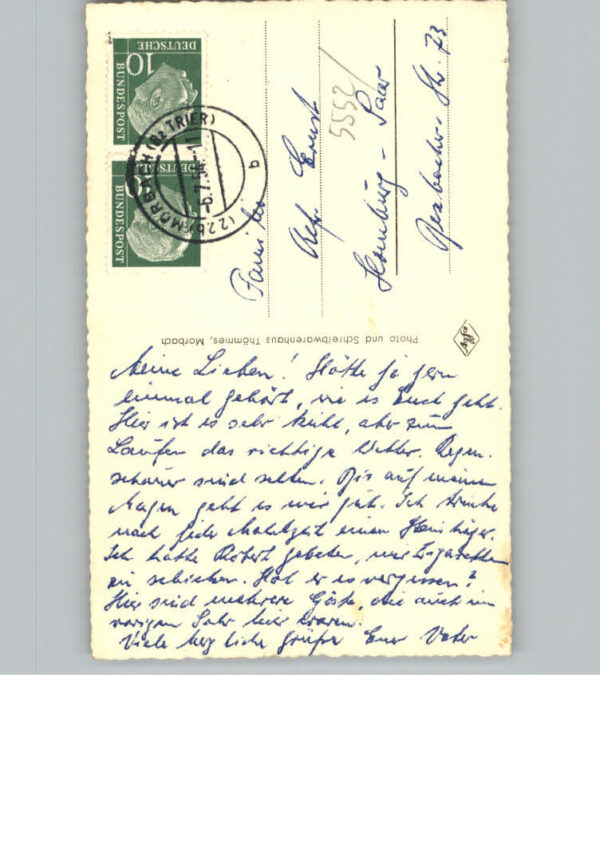 DEUTSCHE
10
BUNDESPOST
DEUTSCHE
BUNDESPOST
(22b) MORBACH (BZ. TRIER)
b
5552/
Familie
Ernst
Homburg - Saar
Str. 73
Photo und Schreibwarenhaus Thömmes, Morbach
Meine Lieben! Hätte ja gern
einmal gehört, wie es Euch geht.
Hier ist es sehr kühl, aber zum
Laufen das richtige Wetter. Regen-
schauer sind selten. Bis auf meinen
Magen geht es mir gut. Ich trinke
nach jeder Mahlzeit einen
Ich hatte Robert gebeten, mir Zigaretten
zu schicken. Hat er es vergessen?
Hier sind mehrere Gäste, die auch im
vorigen Jahr hier waren.
Viele herzliche Grüße Euer Vater